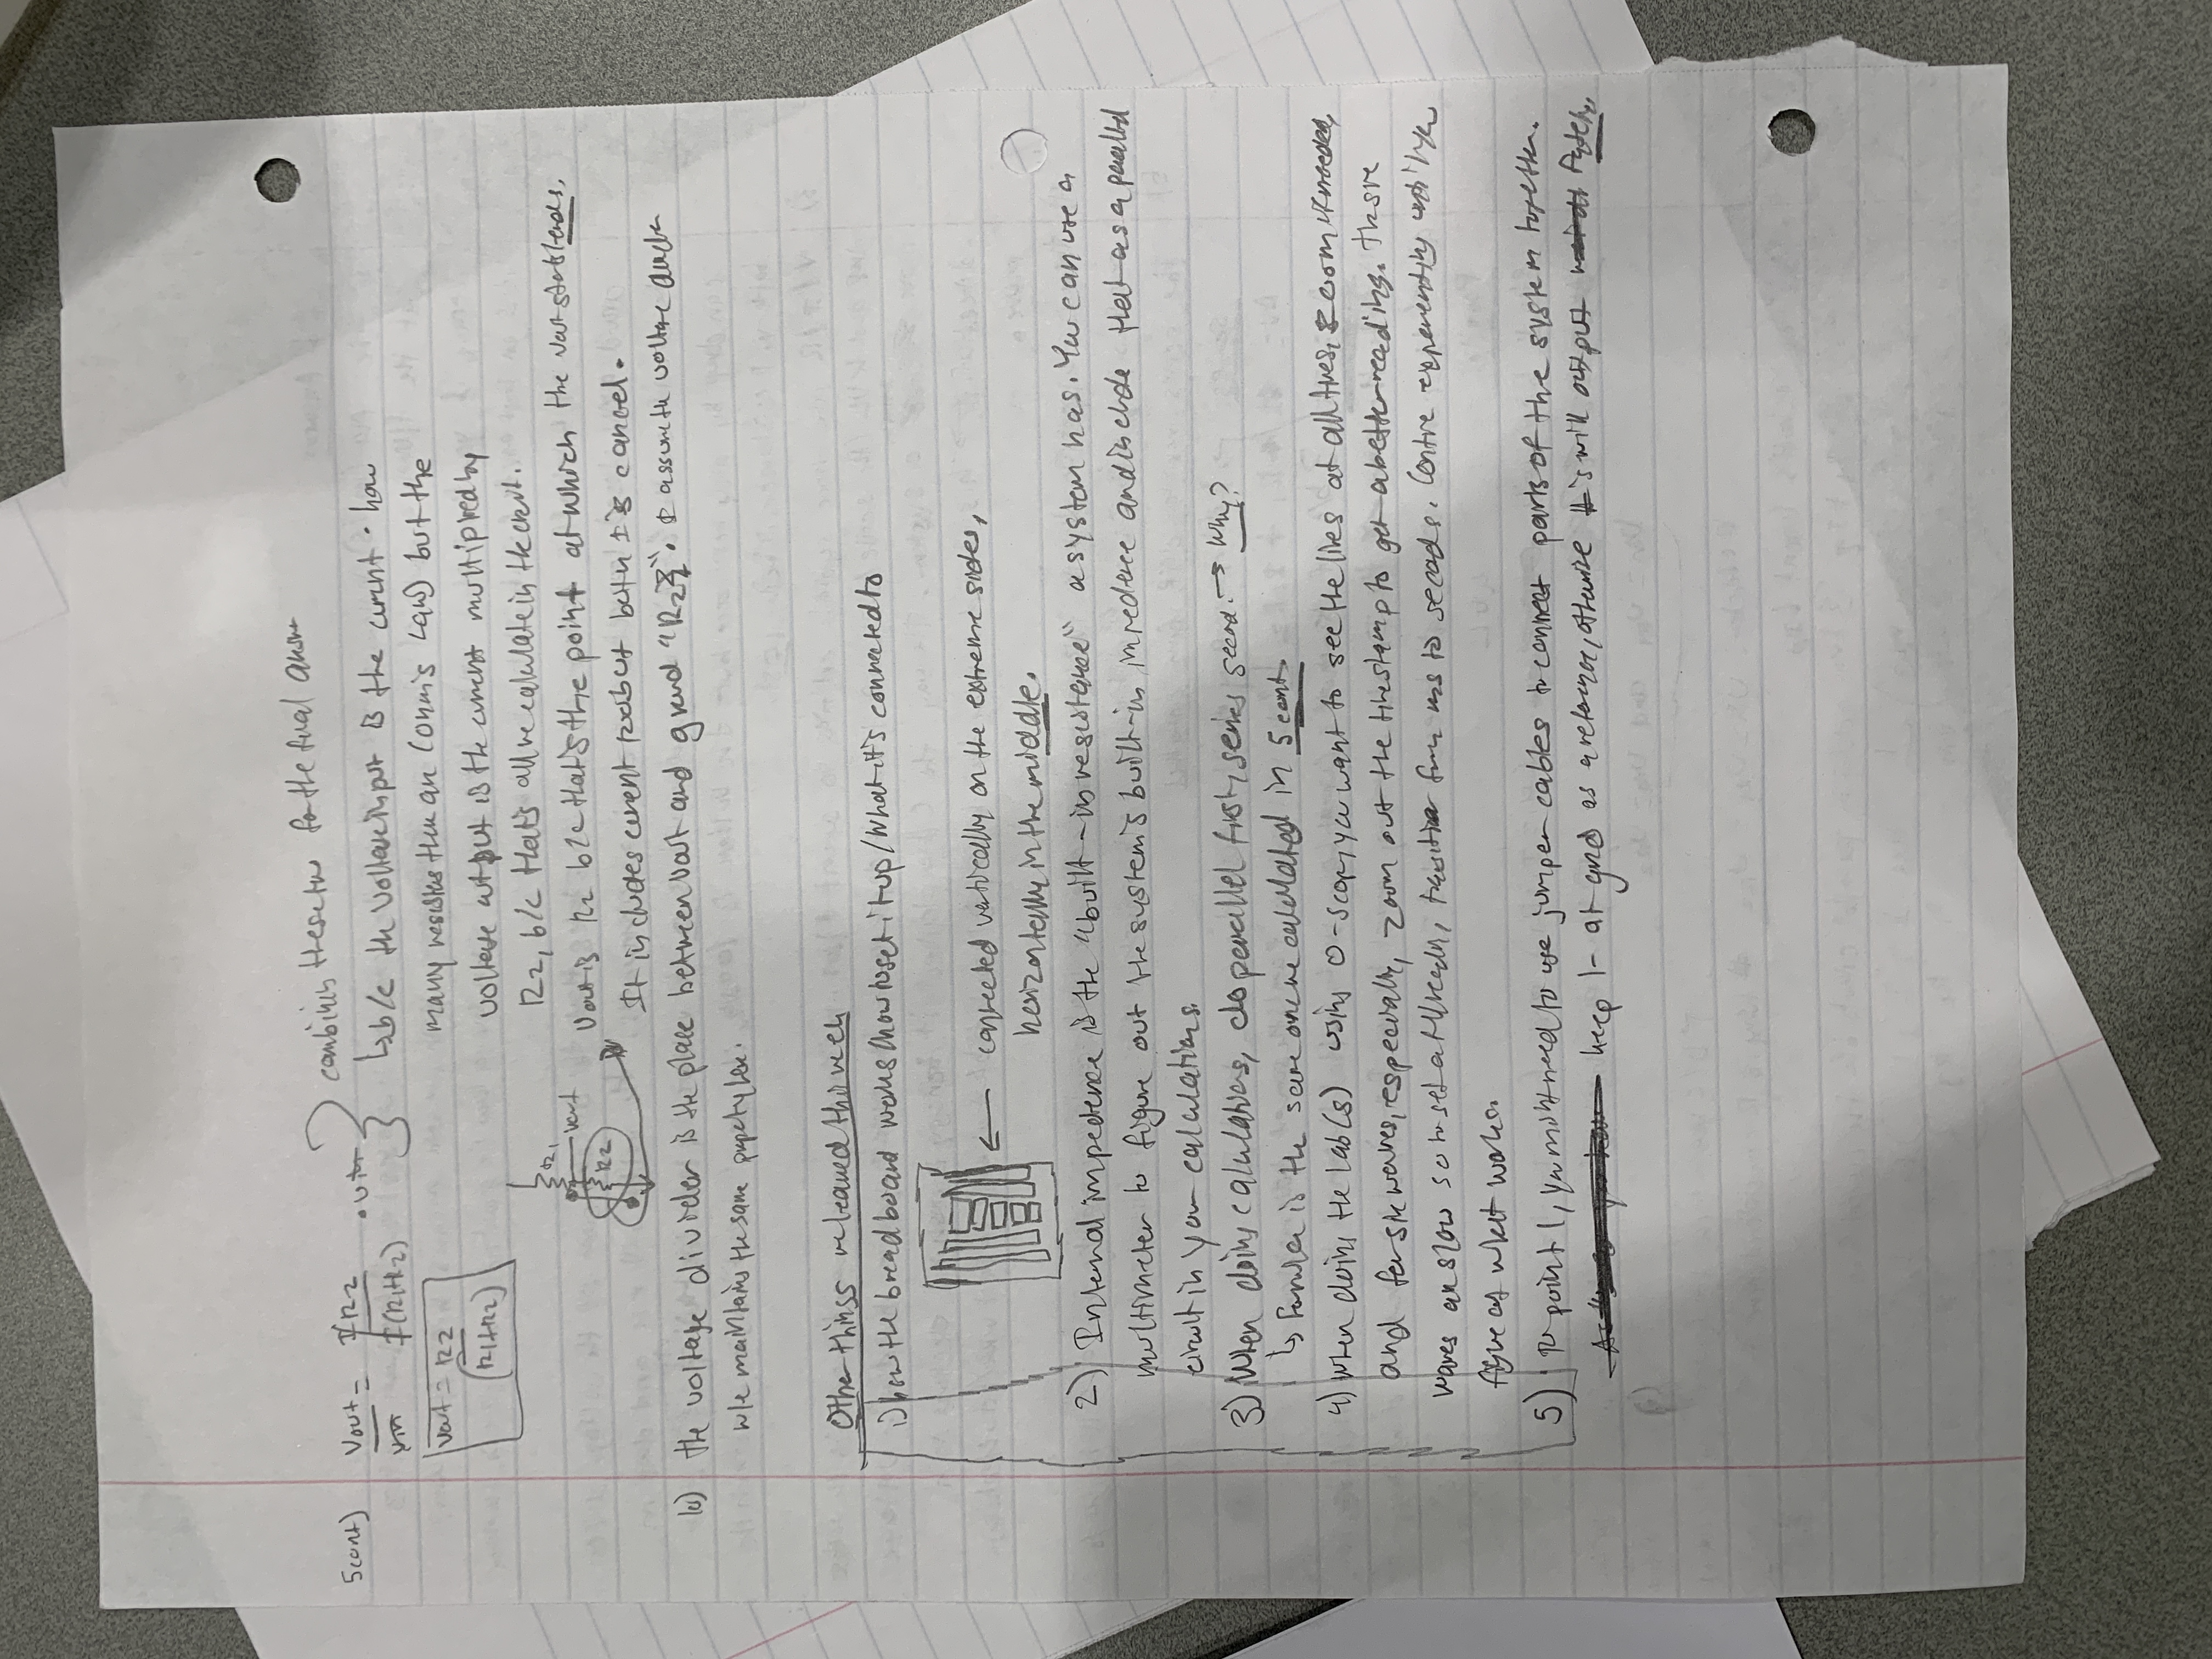 5cont) Vout = IR2 · Vin } combining these two for the final answer
Vin I(R1+R2)
↳ b/c the voltage input is the current · how
Vout = R2
(R1+R2)
many resistors there are (Ohm's Law) but the
voltage output is the current multiplied by
R2, b/c that's all we calculate in the circuit.
R1
Vout
R2
Vout is R2 b/c that's the point at which the Vout starts/ends.
It includes current too but both I's cancel.
the voltage divider is the place between Vout and ground "R2". I assume the voltage divider
maintains the same property here.
Other things we learned this week
1) how the breadboard works/how to set it up/what it's connected to
← connected vertically on the extreme sides,
horizontally in the middle.
2) Internal impedence is the "built-in resistance" a system has. You can use a
multimeter to figure out the system's built-in impedence and include that as a parallel
circuit in your calculations.
3) When doing calculations, do parallel first, series second. → Why?
↳ Formula is the same one we calculated in 5cont
4) When doing the lab(s) using O-scope, you want to see the lines at all times, zoom if needed,
and for sine waves, especially, zoom out the timestamp to get a better reading. These
waves are slow so to get a reading, transition from ms to seconds. Continue experimenting until you
figure out what works.
5) To point 1, you might need to use jumper cables to connect parts of the system together.
keep 1- at gnd as a reference, otherwise #'s will output